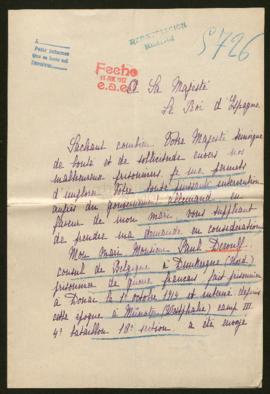 5726
Fecho
A Sa Majesté
Le Roi d'Espagne,
Sachant combien Votre Majesté témoigne
de bonté et de sollicitude envers nos
malheureux prisonniers, je me permets
d'implorer Votre toute puissante intervention
auprès du gouvernement allemand en
faveur de mon mari vous suppliant
de prendre ma demande en considération.
Mon mari Monsieur Paul
consul de Belgique à Dunkerque (Nord)
prisonnier de guerre français fait prisonnier
à Douai le 1er octobre 1914 et interné depuis
cette époque à Münster (Westphalie) camp III.
4e bataillon 18e section. a été